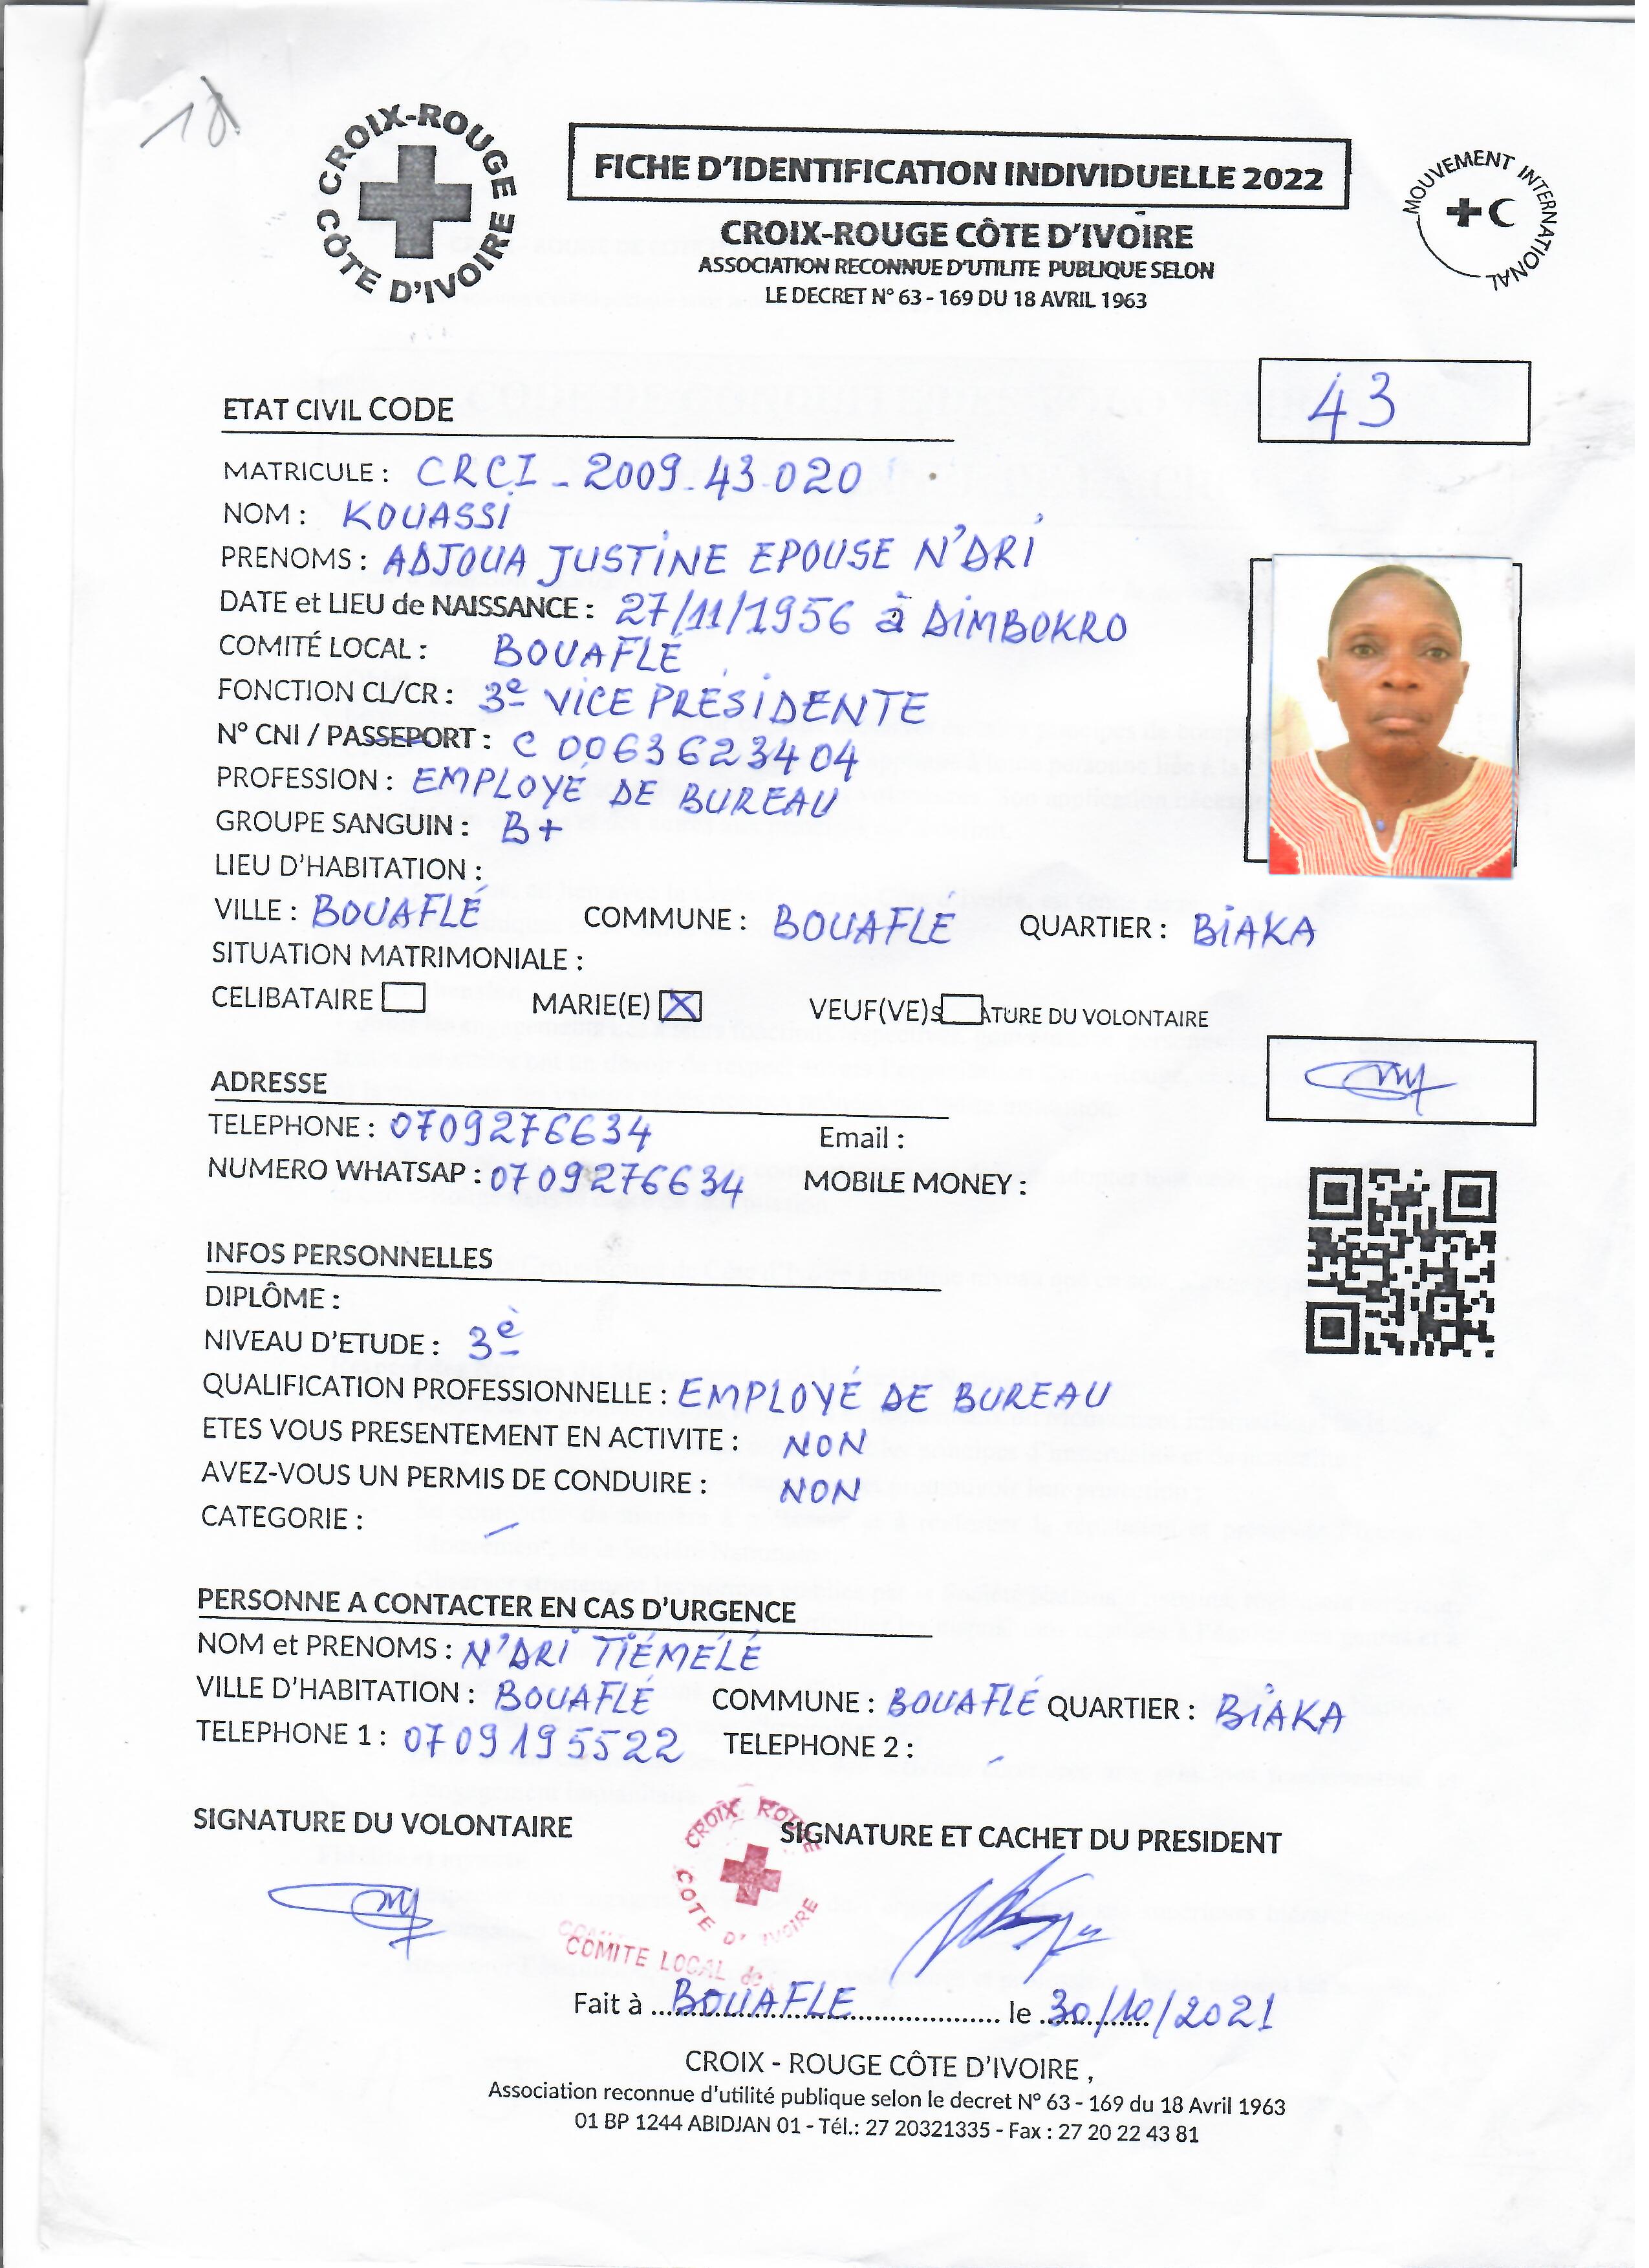 18
CROIX-ROUGE CÔTE D'IVOIRE
FICHE D'IDENTIFICATION INDIVIDUELLE 2022
MOUVEMENT INTERNATIONAL
CROIX-ROUGE CÔTE D'IVOIRE
ASSOCIATION RECONNUE D'UTILITE PUBLIQUE SELON
LE DECRET N° 63 - 169 DU 18 AVRIL 1963
ETAT CIVIL CODE
43
MATRICULE : CRCI - 2009-43-020
NOM : KOUASSI
PRENOMS : ADJOUA JUSTINE EPOUSE N'DRI
DATE et LIEU de NAISSANCE : 27/11/1956 à DIMBOKRO
COMITÉ LOCAL : BOUAFLÉ
FONCTION CL/CR : 3e VICE PRÉSIDENTE
N° CNI / PASSEPORT : C 0063623404
PROFESSION : EMPLOYÉ DE BUREAU
GROUPE SANGUIN : B+
LIEU D'HABITATION :
VILLE : BOUAFLÉ COMMUNE : BOUAFLÉ QUARTIER : BIAKA
SITUATION MATRIMONIALE :
CELIBATAIRE MARIE(E) X VEUF(VE) S ATURE DU VOLONTAIRE
ADRESSE
TELEPHONE : 0709276634 Email :
NUMERO WHATSAP : 0709276634 MOBILE MONEY :
INFOS PERSONNELLES
DIPLÔME :
NIVEAU D'ETUDE : 3è
QUALIFICATION PROFESSIONNELLE : EMPLOYÉ DE BUREAU
ETES VOUS PRESENTEMENT EN ACTIVITE : NON
AVEZ-VOUS UN PERMIS DE CONDUIRE : NON
CATEGORIE : -
PERSONNE A CONTACTER EN CAS D'URGENCE
NOM et PRENOMS : N'DRI TIÉMÉLÉ
VILLE D'HABITATION : BOUAFLÉ COMMUNE : BOUAFLÉ QUARTIER : BIAKA
TELEPHONE 1 : 0709195522 TELEPHONE 2 : -
SIGNATURE DU VOLONTAIRE SIGNATURE ET CACHET DU PRESIDENT
CROIX ROUGE COTE D'IVOIRE
COMITE LOCAL de
Fait à BOUAFLE le 30/10/2021
CROIX - ROUGE CÔTE D'IVOIRE ,
Association reconnue d'utilité publique selon le decret N° 63 - 169 du 18 Avril 1963
01 BP 1244 ABIDJAN 01 - Tél.: 27 20321335 - Fax : 27 20 22 43 81